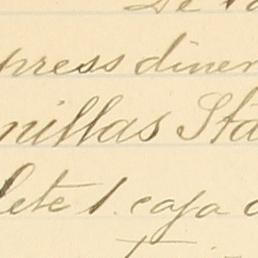 De
press diner
nillas Sta
lete 1. caja